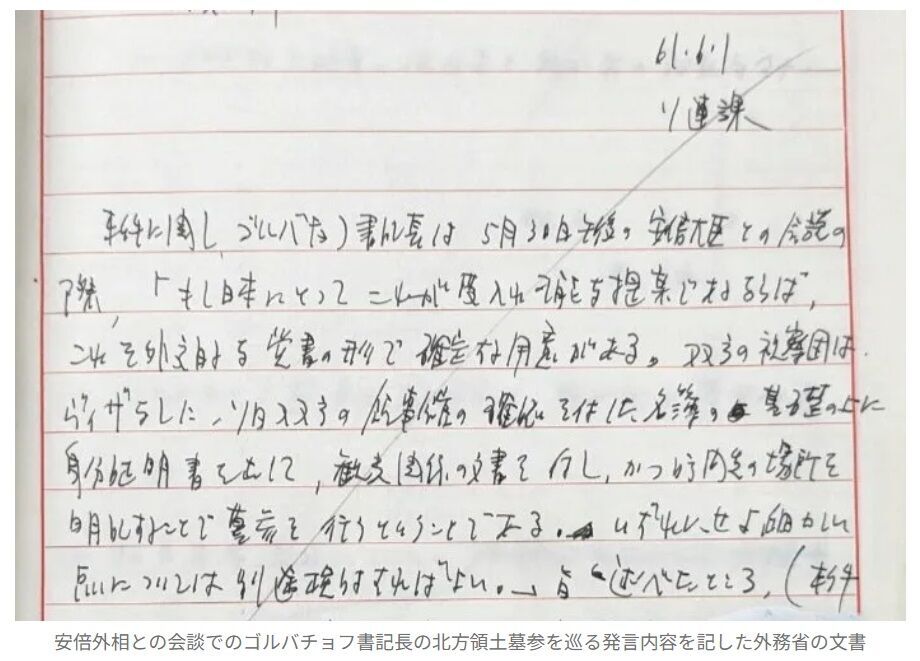 61.6.1
ソ連課
本件に関しゴルバチョフ書記長は5月30日午後の安倍大臣との会談の
際、「もし日本にとってこれが受入れ可能な提案であるならば、
これを外交的な覚書の形で確定する用意がある。双方の
ヴィザなしに、ソ日双方の の確認をした名簿の基礎の上に
身分証明書を 、観光関係の文書を し、かつ訪問先の場所を
明記することで墓参を行うということである。いずれにせよ細かい
点については別途検討すればよい。」旨述べたところ、(本件
安倍外相との会談でのゴルバチョフ書記長の北方領土墓参を巡る発言内容を記した外務省の文書